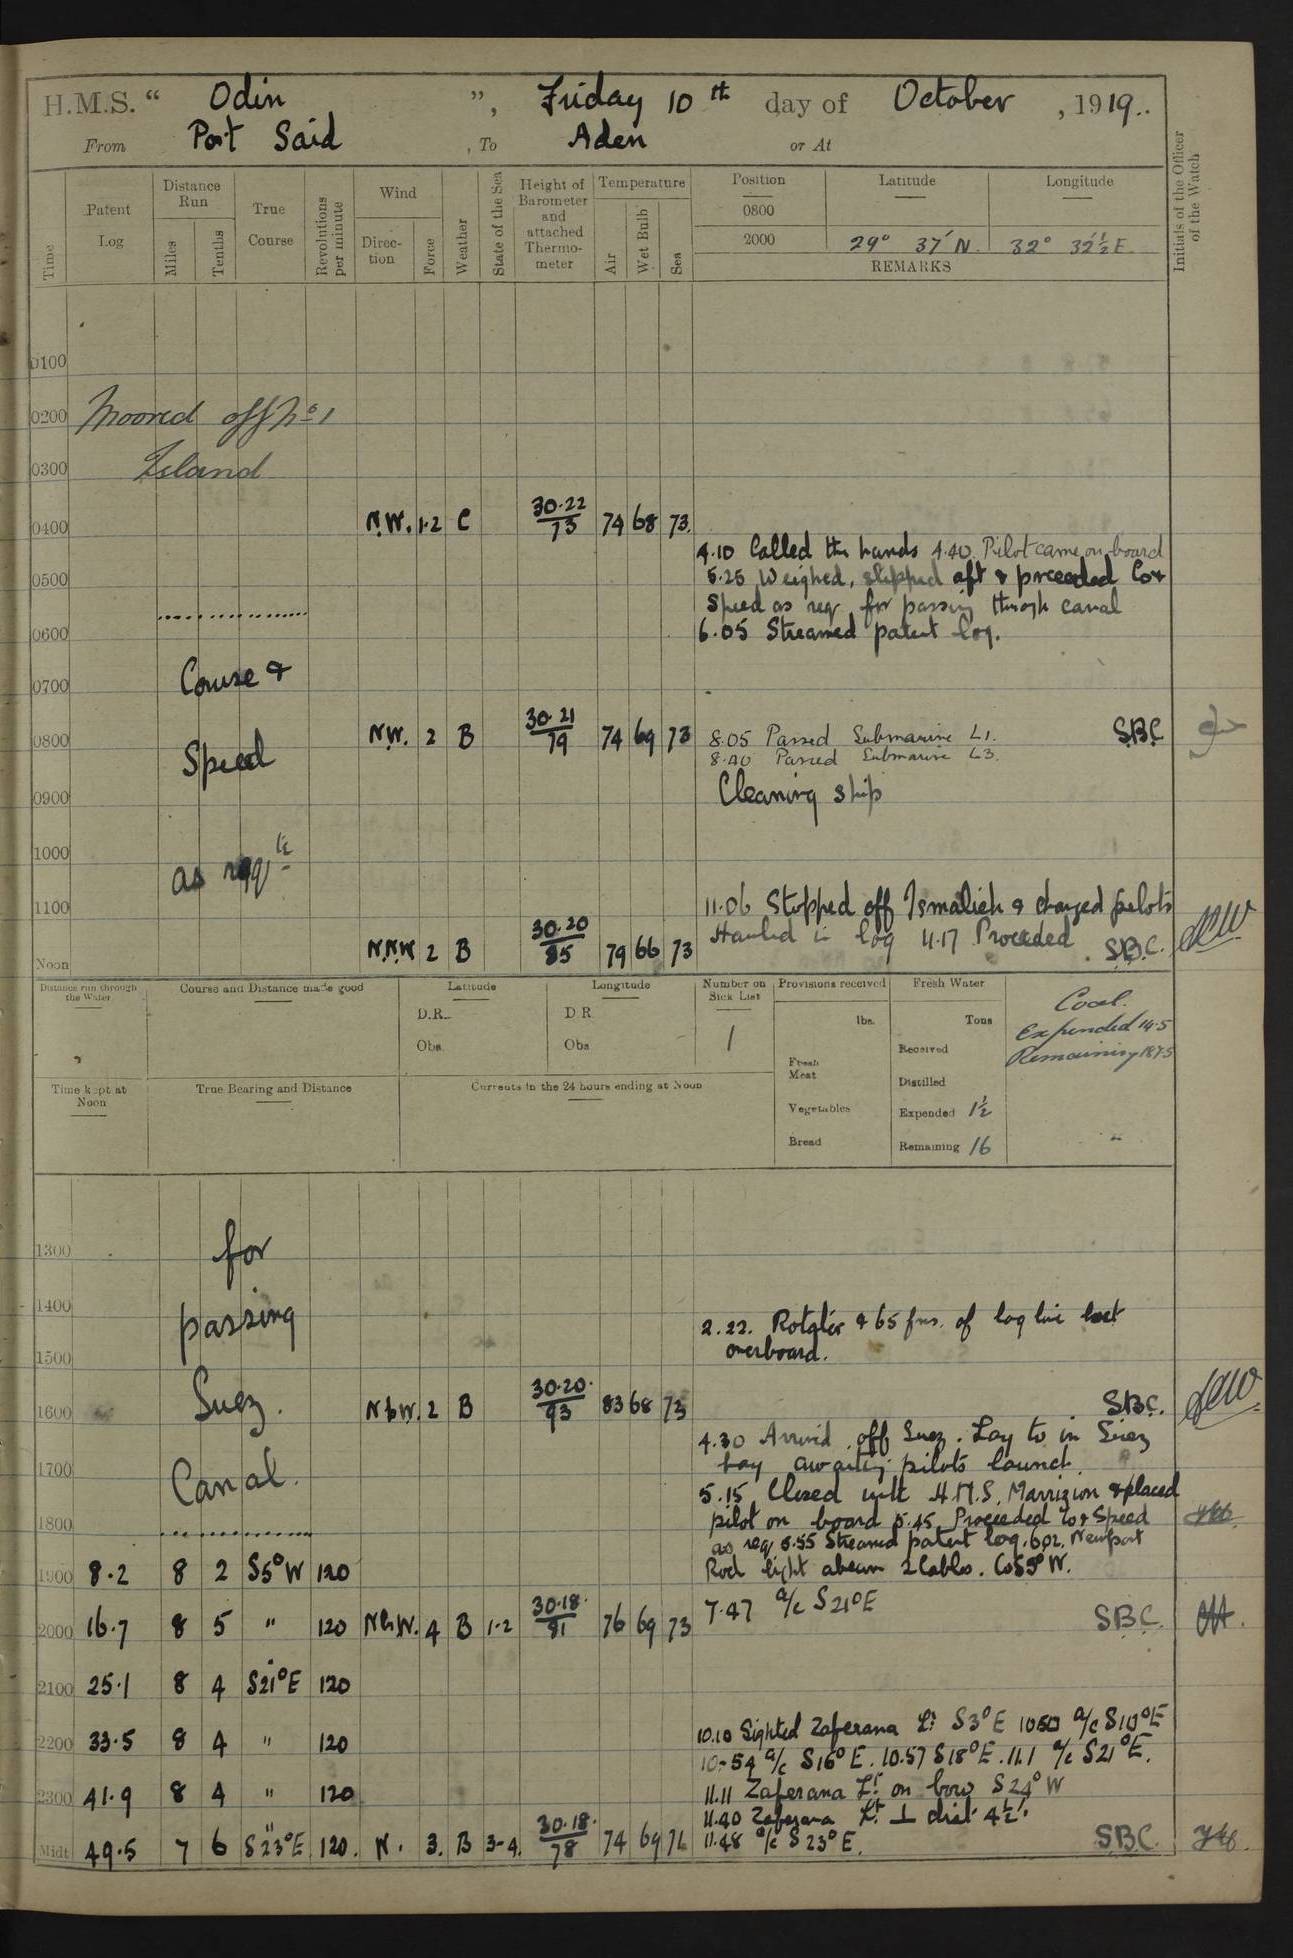 H.M.S. " Odin ", Friday 10th day of October, 1919..
From Port Said, To Aden or At
Time
Patent Log
Distance Run
Miles
Tenths
True Course
Revolutions per minute
Wind
Direc-tion
Force
Weather
State of the Sea
Height of Barometer and attached Thermo-meter
Temperature
Air
Wet Bulb
Sea
Position
Latitude
Longitude
0800
2000 29° 37' N 32° 32½' E.
REMARKS
Initials of the Officer of the Watch
0100
0200 Moored off No 1
0300 Island
0400 N.W. 1·2 C 30·22/73 74 68 73.
4·10 Called the hands 4·40. Pilot came on board
0500 5·25 Weighed, slipped aft & proceeded Co &
Speed as req for passing through canal
0600 6·05 Streamed patent log.
0700 Course &
0800 Speed N.W. 2 B 30·21/79 74 69 73 SBC
8·05 Passed Submarine L1.
8·40 Passed Submarine L3.
0900 Cleaning ship
1000 as reqte
1100 11·06 Stopped off Ismalieh & changed pilots
Hauled in log 11·17 Proceeded S.B.C.
Noon N.N.W 2 B 30·20/85 79 66 73
Distance run through the Water
Course and Distance made good
Latitude
D.R.
Obs.
Longitude
D R
Obs
Number on Sick List
1
Provisions received
lbs.
Fresh Meat
Vegetables
Bread
Fresh Water
Tons
Received
Distilled
Expended 1½
Remaining 16
Coal.
Expended 14·5
Remaining 187·5
Time kept at Noon
True Bearing and Distance
Currents in the 24 hours ending at Noon
1300 for
1400 passing
2.22. Rotator & 65 fms. of log line lost
overboard.
1500
1600 Suez. N b W. 2 B 30·20/93 83 68 73 SBC.
4.30 Arrived off Suez. Lay to in Suez
bay awaiting pilots launch.
1700 Canal.
5.15 Closed with H.M.S. Marrizion & placed
pilot on board 5.45 Proceeded Co & Speed
1800 as req 5·55 Streamed patent log. 6 02. Newport
Rock light abeam 2 Cables. Co S5°W.
1900 8·2 8 2 S5°W 120
7·47 a/c S21°E
2000 16·7 8 5 " 120 N b W. 4 B 1-2 30·18/81 76 69 73 SBC.
2100 25·1 8 4 S21°E 120
10.10 Sighted Zaferana Lt S3°E 1050 a/c S10°E
2200 33·5 8 4 " 120
10·54 a/c S16°E. 10.57 S18°E. 11.1 a/c S21°E.
2300 41·9 8 4 " 120
11.11 Zaferana Lt on bow S24°W
11.40 Zaferana Lt. ⊥ dist 4½'.
11.48 a/c S23°E.
Midt 49·5 7 6 S23°E 120. N. 3. B 3-4. 30·18/78 74 69 76 SBC.